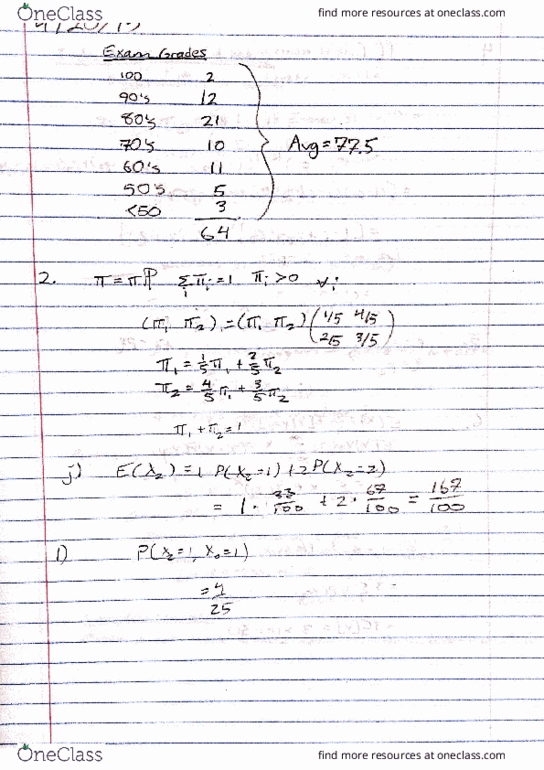 OneClass
find more resources at oneclass.com
Exam Grades
100 2
90's 12
80's 21
70's 10
60's 11
50's 5
<50 3
64
Avg = 77.5
2. π = πℙ Σ_i π_i = 1 π_i > 0 ∀i
(π₁ π₂) = (π₁ π₂) (1/5 4/5
2/5 3/5)
π₁ = 1/5 π₁ + 2/5 π₂
π₂ = 4/5 π₁ + 3/5 π₂
π₁ + π₂ = 1
j) E(X₂) = 1 P(X₂=1) + 2P(X₂=2)
= 1 · 33/100 + 2 · 67/100 = 167/100
l) P(X₂=1, X₀=1)
= 4/25
OneClass
find more resources at oneclass.com